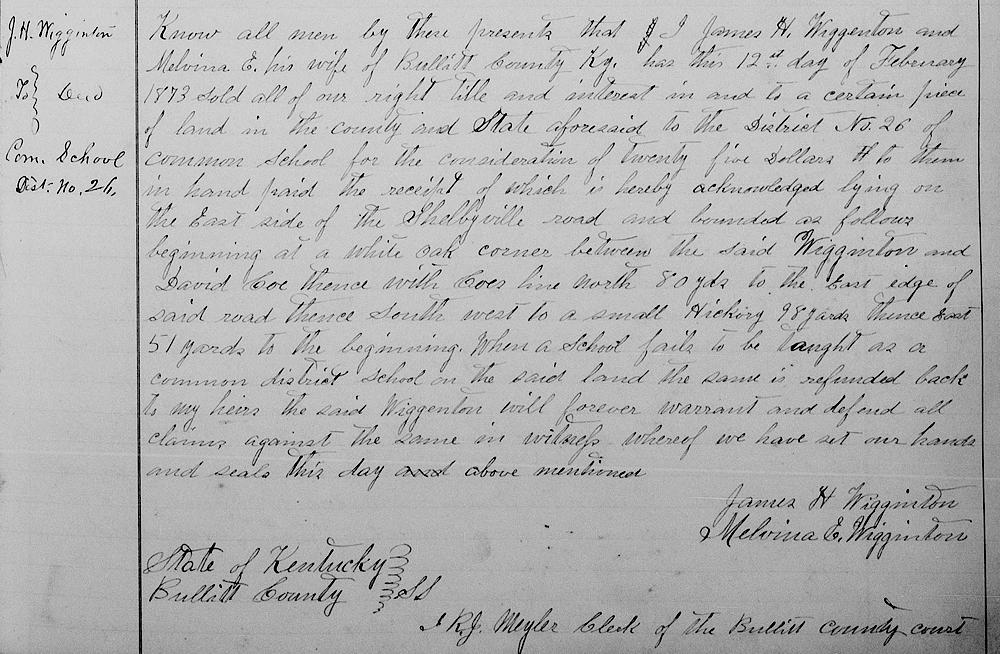 J. H. Wigginton
To } Deed
Com. School
Dist. No. 26,
Know all men by these presents that I James H. Wiggenton and
Melvina E. his wife of Bullitt County Ky. has this 12st day of February
1873 sold all of our right title and interest in and to a certain piece
of land in the county and State aforesaid to the District No. 26 of
common School for the consideration of twenty five Dollars to them
in hand paid the receipt of which is hereby acknowledged lying on
the East side of the Shelbyville road and bounded as follows
beginning at a white oak corner between the said Wigginton and
David Coe thence with Coes line north 80 yds to the East edge of
said road thence South west to a small Hickory 98 yards thence East
51 yards to the beginning. When a School fails to be taught as a
common district School on the said land the same is refunded back
to my heirs the said Wiggenton will forever warrant and defend all
claims against the same in witness whereof we have set our hands
and seals this day and above mentioned
James H Wigginton
Melvina E. Wigginton
State of Kentucky }
Bullitt County } SS
I R. J. Meyler Clerk of the Bullitt county court